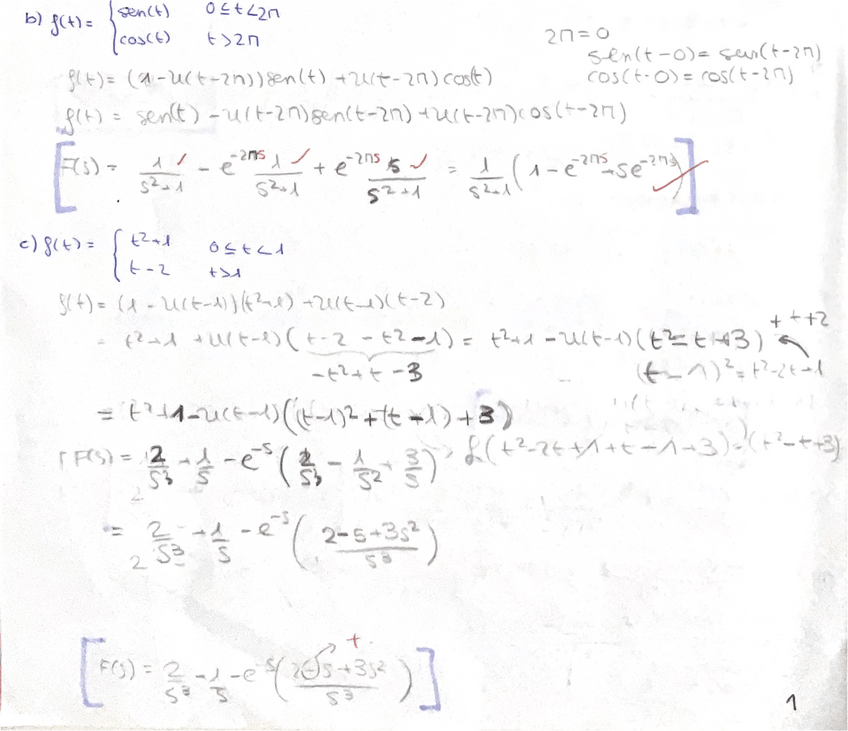 b) f(t) = { sen(t) 0 ≤ t < 2π
cos(t) t > 2π
2π = 0
sen(t-0) = sen(t-2π)
cos(t-0) = cos(t-2π)
f(t) = (1 - u(t-2π)) sen(t) + u(t-2π) cos(t)
f(t) = sen(t) - u(t-2π) sen(t-2π) + u(t-2π) cos(t-2π)
F(s) = 1/(s²+1) ✓ - e^(-2πs) 1/(s²+1) ✓ + e^(-2πs) s/(s²+1) ✓ = 1/(s²+1) (1 - e^(-2πs) + s e^(-2πs)) ✓
c) f(t) = { t²+1 0 ≤ t < 1
t-2 t > 1
f(t) = (1 - u(t-1))(t²+1) + u(t-1)(t-2)
= t²+1 + u(t-1)(t-2 - t² - 1) = t²+1 - u(t-1)(t² - t + 3)
-t² + t - 3
(t-1)² = t² - 2t + 1
= t²+1 - u(t-1)((t-1)² + (t-1) + 3)
F(s) = 2/s³ + 1/s - e^(-s) (2/s³ - 1/s² + 3/s)
(t² - 2t + 1 + t - 1 + 3) = (t² - t + 3)
= 2/s³ + 1/s - e^(-s) ((2 - s + 3s²)/s³)
+
F(s) = 2/s³ - 1/s - e^(-s) ((2 - s + 3s²)/s³)
1